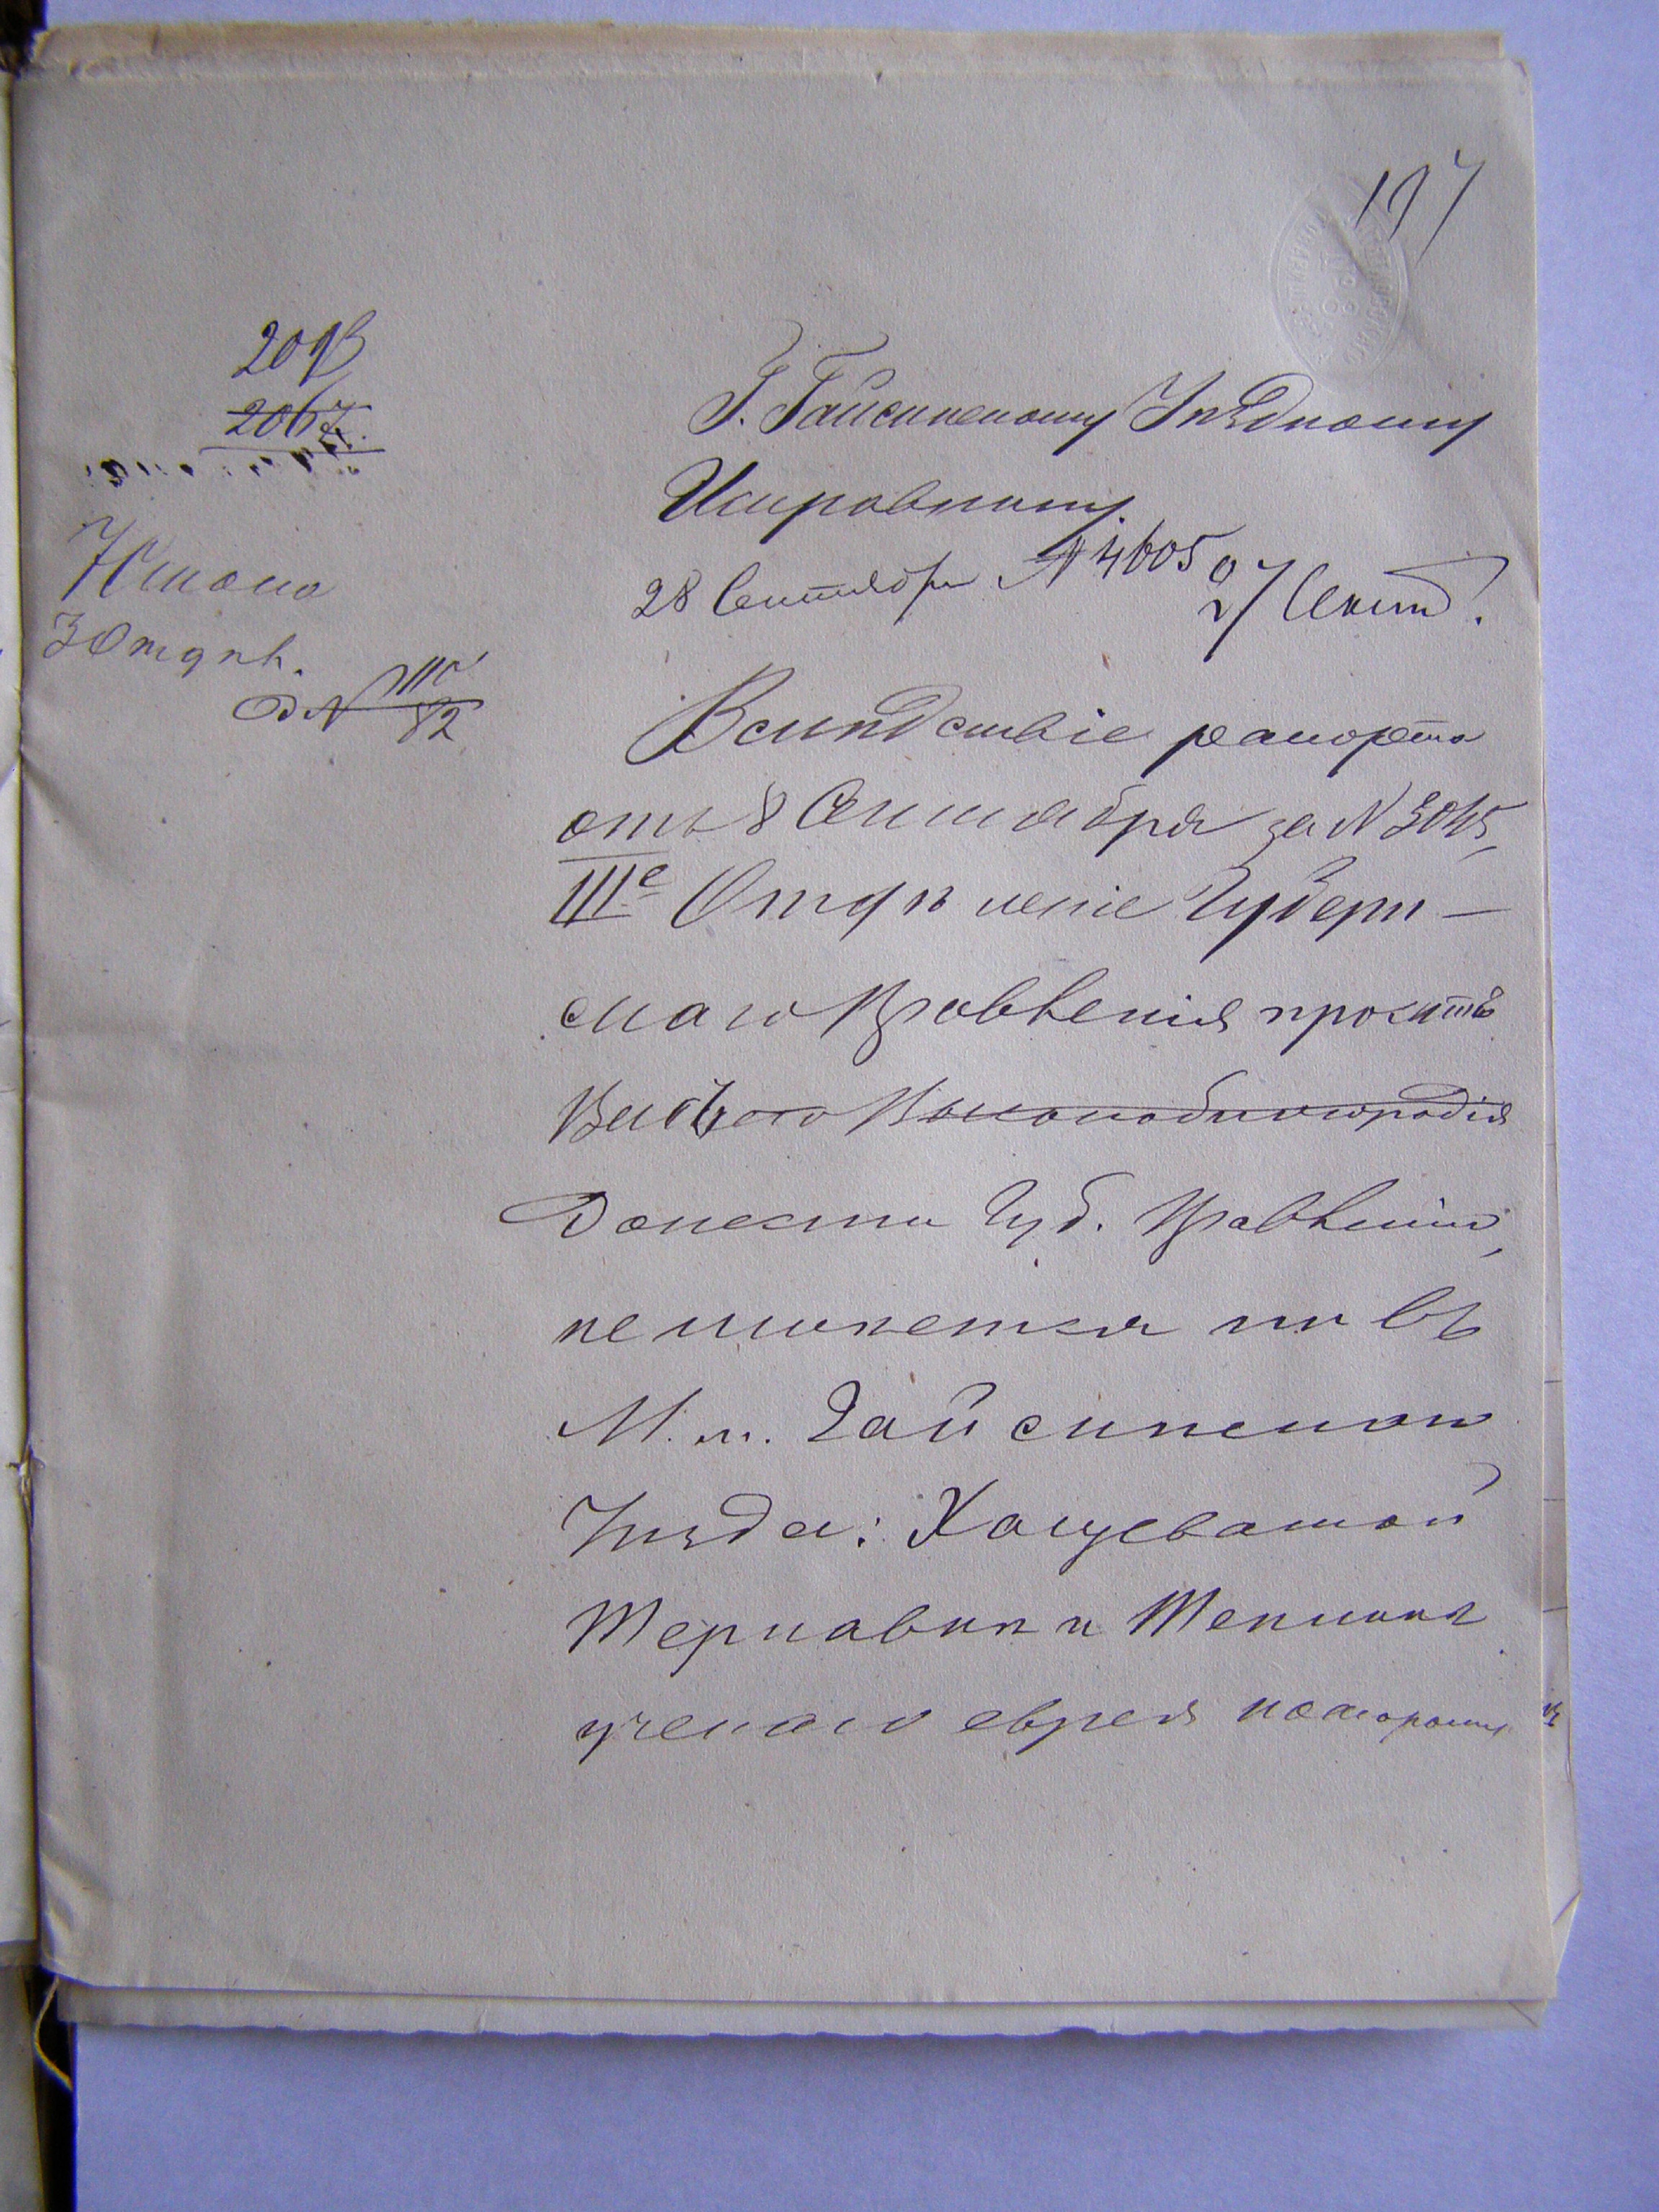 197
2067
3 Отдѣл.
Г. Гайсинскому Уѣздному
Исправнику.
28 Сентября № 4605 27 Сент.
Вслѣдствіе рапорта
отъ 8 Сентября за № 3045,
IIIе Отдѣленіе Губерн-
скаго Правленія проситъ
Вашего Высокоблагородія
Донести Губ. Правленію,
не имѣется ли въ
М.м. Гайсинскаго
Уѣзда: Хащеватой
Терновки и Теплика
ученаго еврея которому